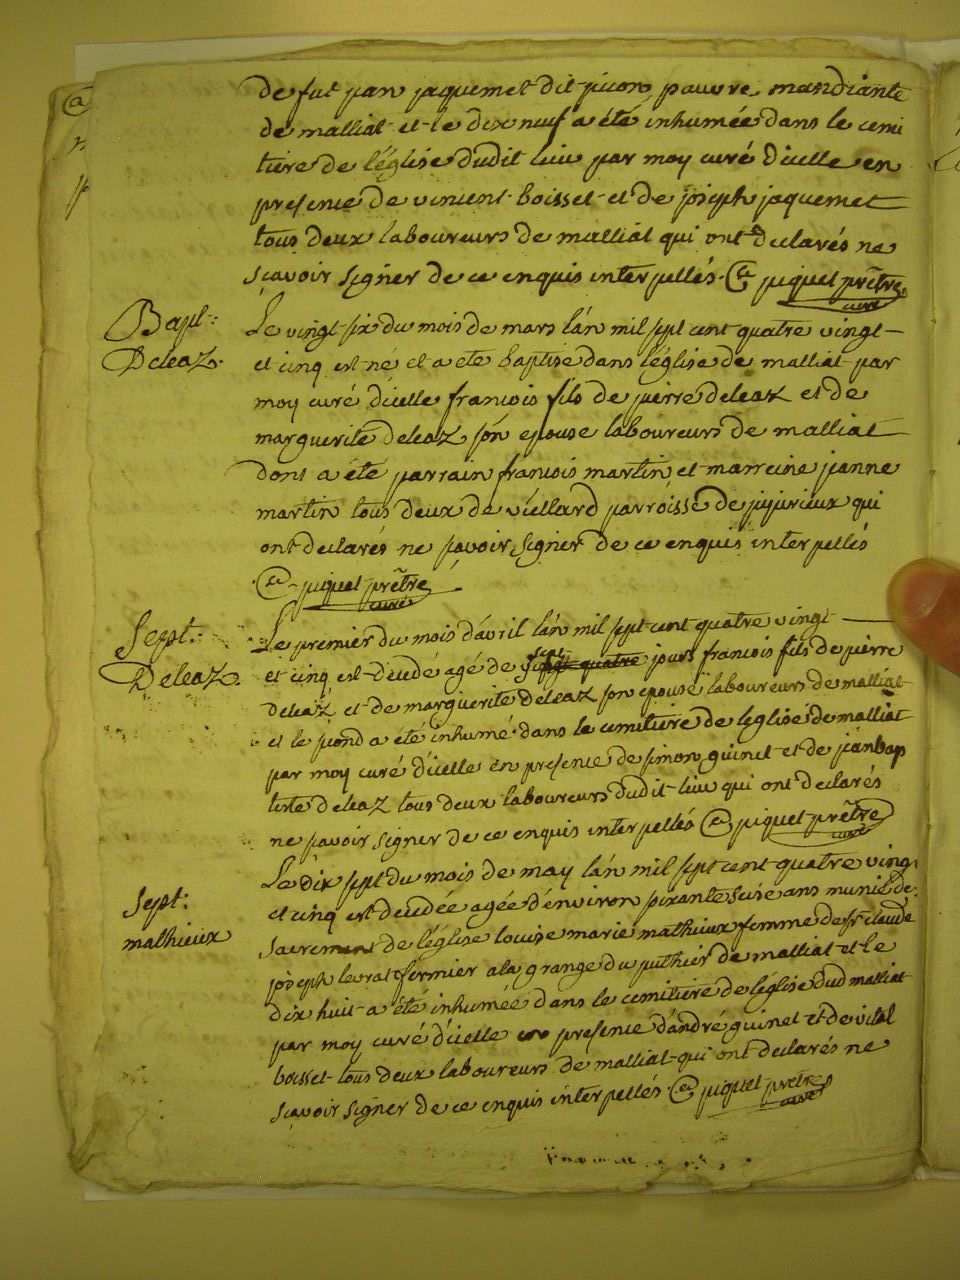 de fut jean jaquemet dit juron pauvre mandiante
de malliat et le dix neuf a été inhumée dans le cemi
tiere de l'église dudit lieu par moy curé d'icelle en
presence de vincent boisset et de joseph jaquemet
tous deux laboureurs de malliat qui ont declarés ne
sçavoir signer de ce enquis interpellés. piquet prêtre
curé
Bapt:
Deleaz.
Le vingt six du mois de mars l'an mil sept cent quatre vingt
et cinq est né et a ete baptise dans l'église de malliat par
moy curé d'icelle francois fils de pierre deleaz et de
marguerite deleaz son epouse laboureurs de malliat
dont a été parrain francois martin et marreine jeanne
martin tous deux de viellard parroisse de jujurieux qui
ont declarés ne savoir signer de ce enquis interpellés
piquet prêtre
curé
Sept:
Deleaz.
Le premier du mois d'avril l'an mil sept cent quatre vingt
et cinq est decedé agé de sept vingt quatre jours francois fils de pierre
deleaz et de marguerite deleaz son epouse laboureurs de malliat
et le second a été inhumé dans le cemitiere de leglise de malliat
par moy curé d'icelle en presence de simon guinet et de jeanbap
tiste deleaz tous deux laboureurs dudit lieu qui ont declarés
ne savoir signer de ce enquis interpellés piquet prêtre
curé
Sept:
mathieux
Le dix sept du mois de may l'an mil sept cent quatre ving
et cinq est decedée agée d'environ soixante seise ans munie de
sacrement de l'église louise marie mathieux femme de sr claude
joseph levrat fermier a la grange du puthier de malliat et le
dix huit a été inhumée dans le cemitiere de l'église dud malliat
par moy curé d'icelle en presence d'andré guinet et de vital
boisset tous deux laboureurs de malliat qui ont declarés ne
sçavoir signer de ce enquis interpellés. piquet prêtre
curé